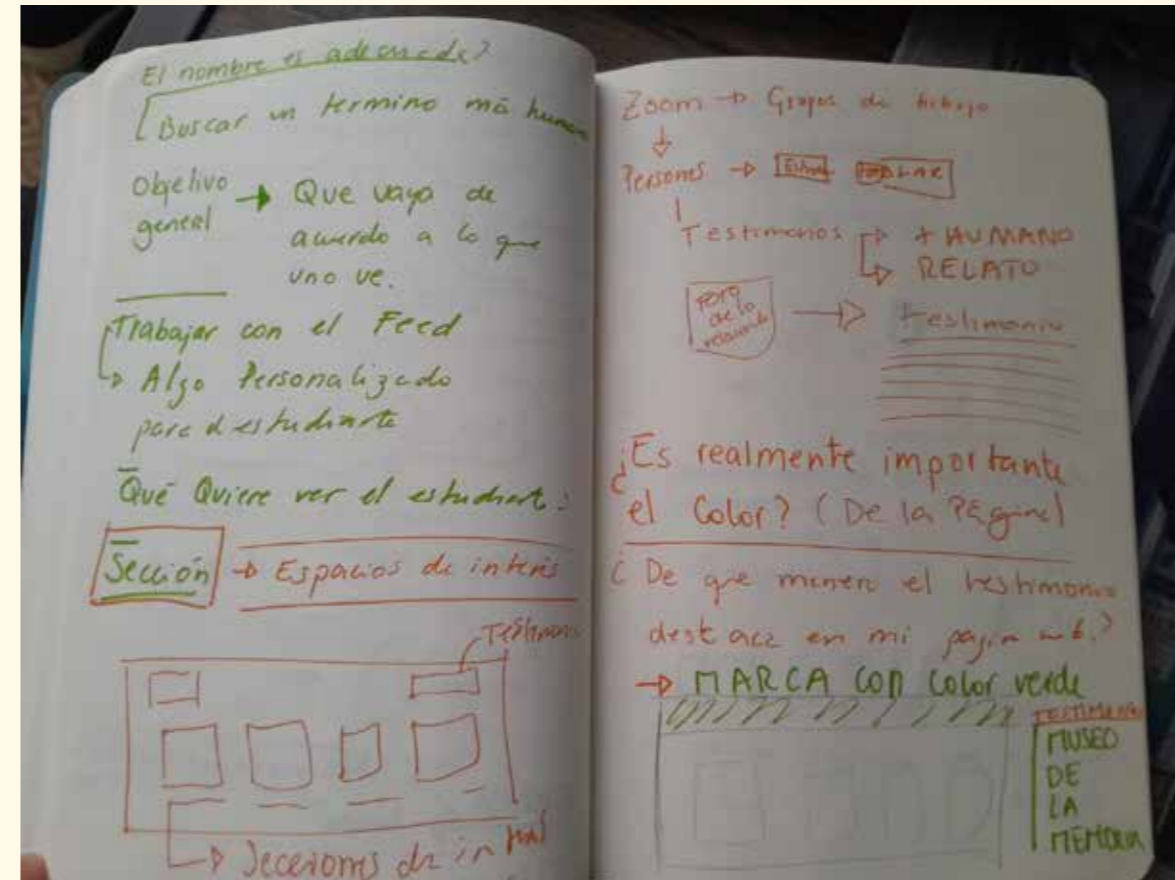 El nombre es adecuado?
Buscar un termino má human
Objetivo
general → Que vaya de
acuerdo a lo que
uno ve.
Trabajar con el Feed
Algo Personalizado
para el estudiante
Qué Quiere ver el estudiante:
Sección → Espacios de interés
Testimonio
Secciones de
Zoom → Grupos de trabajo
Personas →
Testimonios + HUMANO
RELATO
Foro
de lo
→ testimonio
¿Es realmente importante
el Color? (De la Página)
¿De que manera el testimonio
destaca en mi pagina web?
→ MARCA CON Color verde
TESTIMONIO
MUSEO
DE
LA
MEMORIA